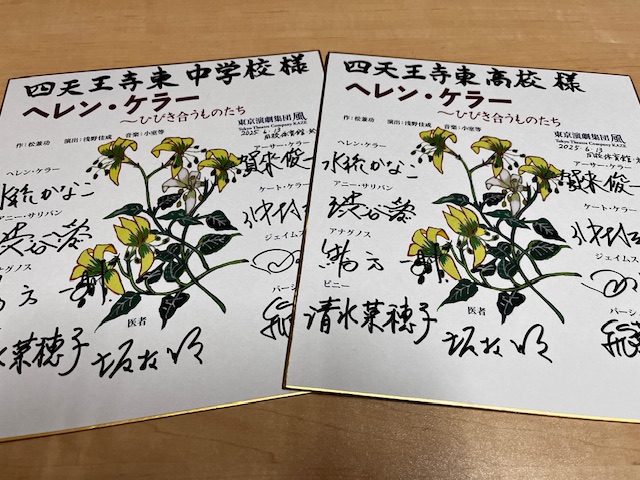 四天王寺東中学校様
ヘレン・ケラー
〜ひびき合うものたち
作：松兼功 演出：浅野佳成 音楽：小室等
東京演劇集団風
Tokyo Theatre Company KAZE
2025.6.13
ヘレン・ケラー
アーサー・ケラー
水緒かなこ
賀來俊一
アニー・サリバン
ケート・ケラー
渋谷愛
アナグノス
ジェイムス
緒方
医者
パーシ
水菜穂子
坂牧明
四天王寺東高校様
ヘレン・ケラー
〜ひびき合うものたち
作：松兼功 演出：浅野佳成 音楽：小室等
東京演劇集団風
Tokyo Theatre Company KAZE
2025.6.13
ヘレン・ケラー
アーサー・ケラー
水緒かなこ
賀來俊一
アニー・サリバン
ケート・ケラー
渋谷愛
アナグノス
ジェイム
緒方
ビニー
医者
パーシー
清水菜穂子
坂牧明